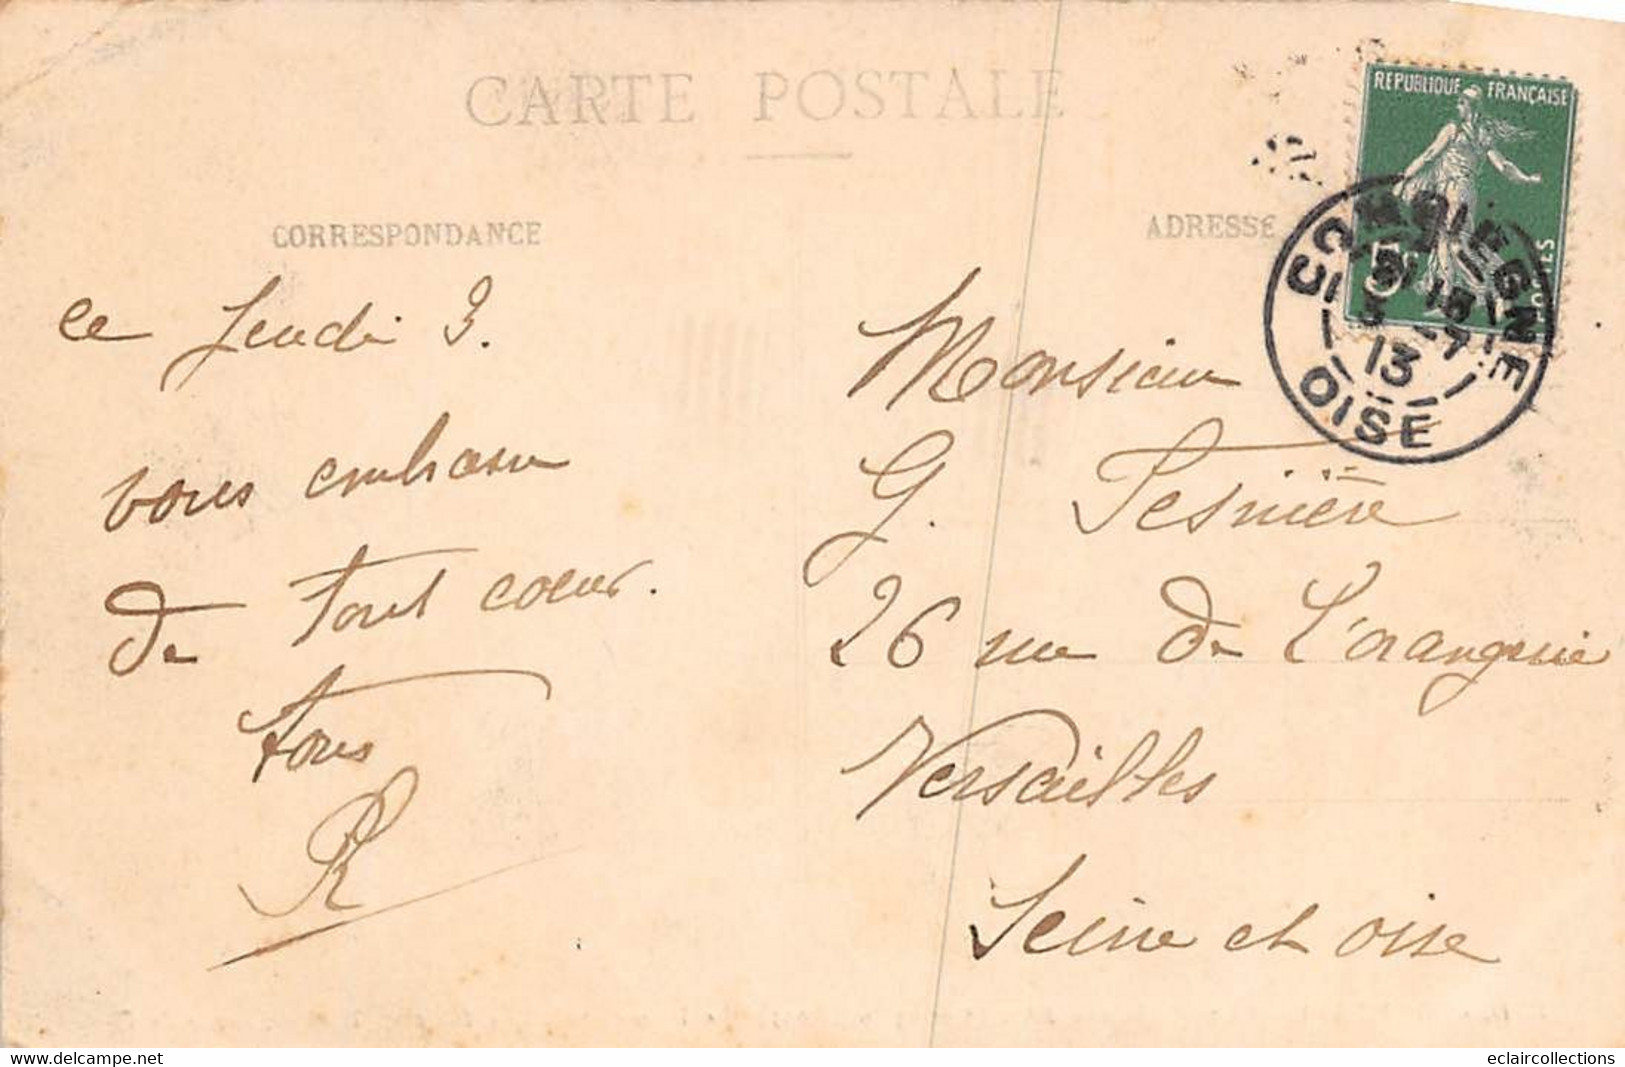 CARTE POSTALE
CORRESPONDANCE
ADRESSE
REPUBLIQUE FRANÇAISE
5c
POSTES
COMPIEGNE
3 -7
13
OISE
ce Jeudi 3.
vous embrasse
de tout coeur.
tous
R
Monsieur
G. Tesnière
26 rue de L'orangerie
Versailles
Seine et oise
www.delcampe.net
eclaircollections